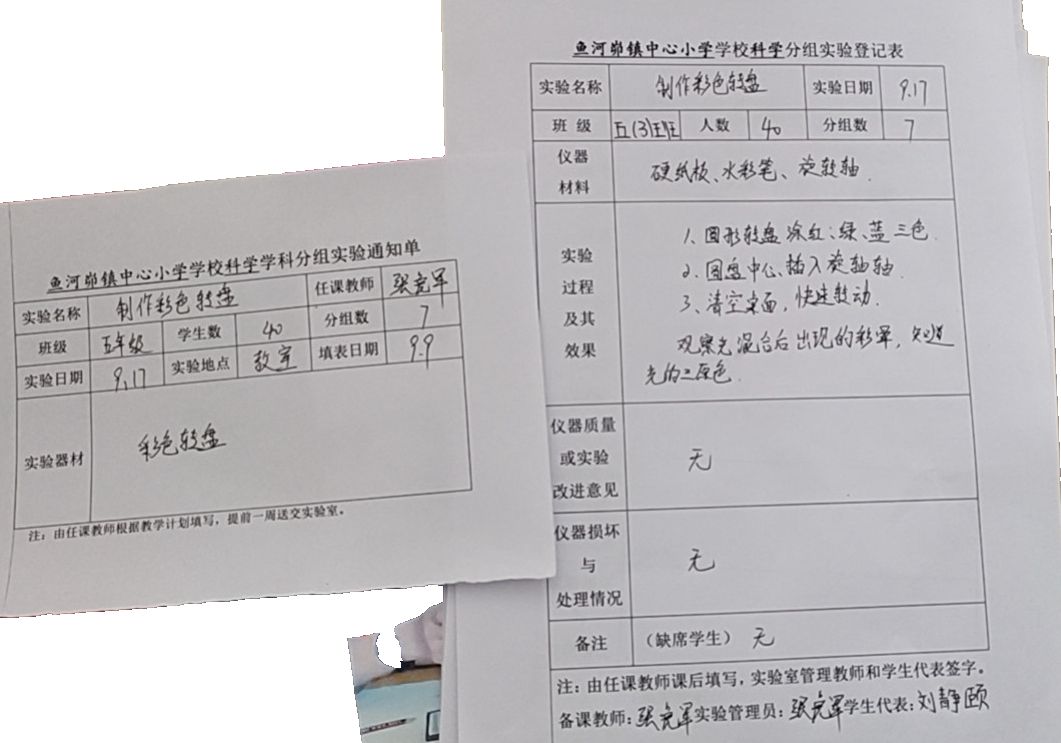 鱼河峁镇中心小学学校科学学科分组实验通知单
实验名称 制作彩色转盘 任课教师
班级 五年级 学生数 40 分组数 7
实验日期 9.17 实验地点 教室 填表日期 9.9
实验器材 彩色转盘
注：由任课教师根据教学计划填写，提前一周送交实验室。
鱼河峁镇中心小学学校科学分组实验登记表
实验名称 制作彩色转盘 实验日期 9.17
班 级 五(3)班 人数 40 分组数 7
仪器
材料
硬纸板、水彩笔、旋转轴.
实验
过程
及其
效果
1、圆形转盘涂红、绿、蓝三色.
2、圆盘中心插入旋转轴.
3、清空桌面，快速转动.
观察光混合后出现的彩晕，知道
光的三原色.
仪器质量
或实验
改进意见
无
仪器损坏
与
处理情况
无
备注 （缺席学生） 无
注：由任课教师课后填写，实验室管理教师和学生代表签字。
备课教师： 实验管理员： 学生代表：刘静颐